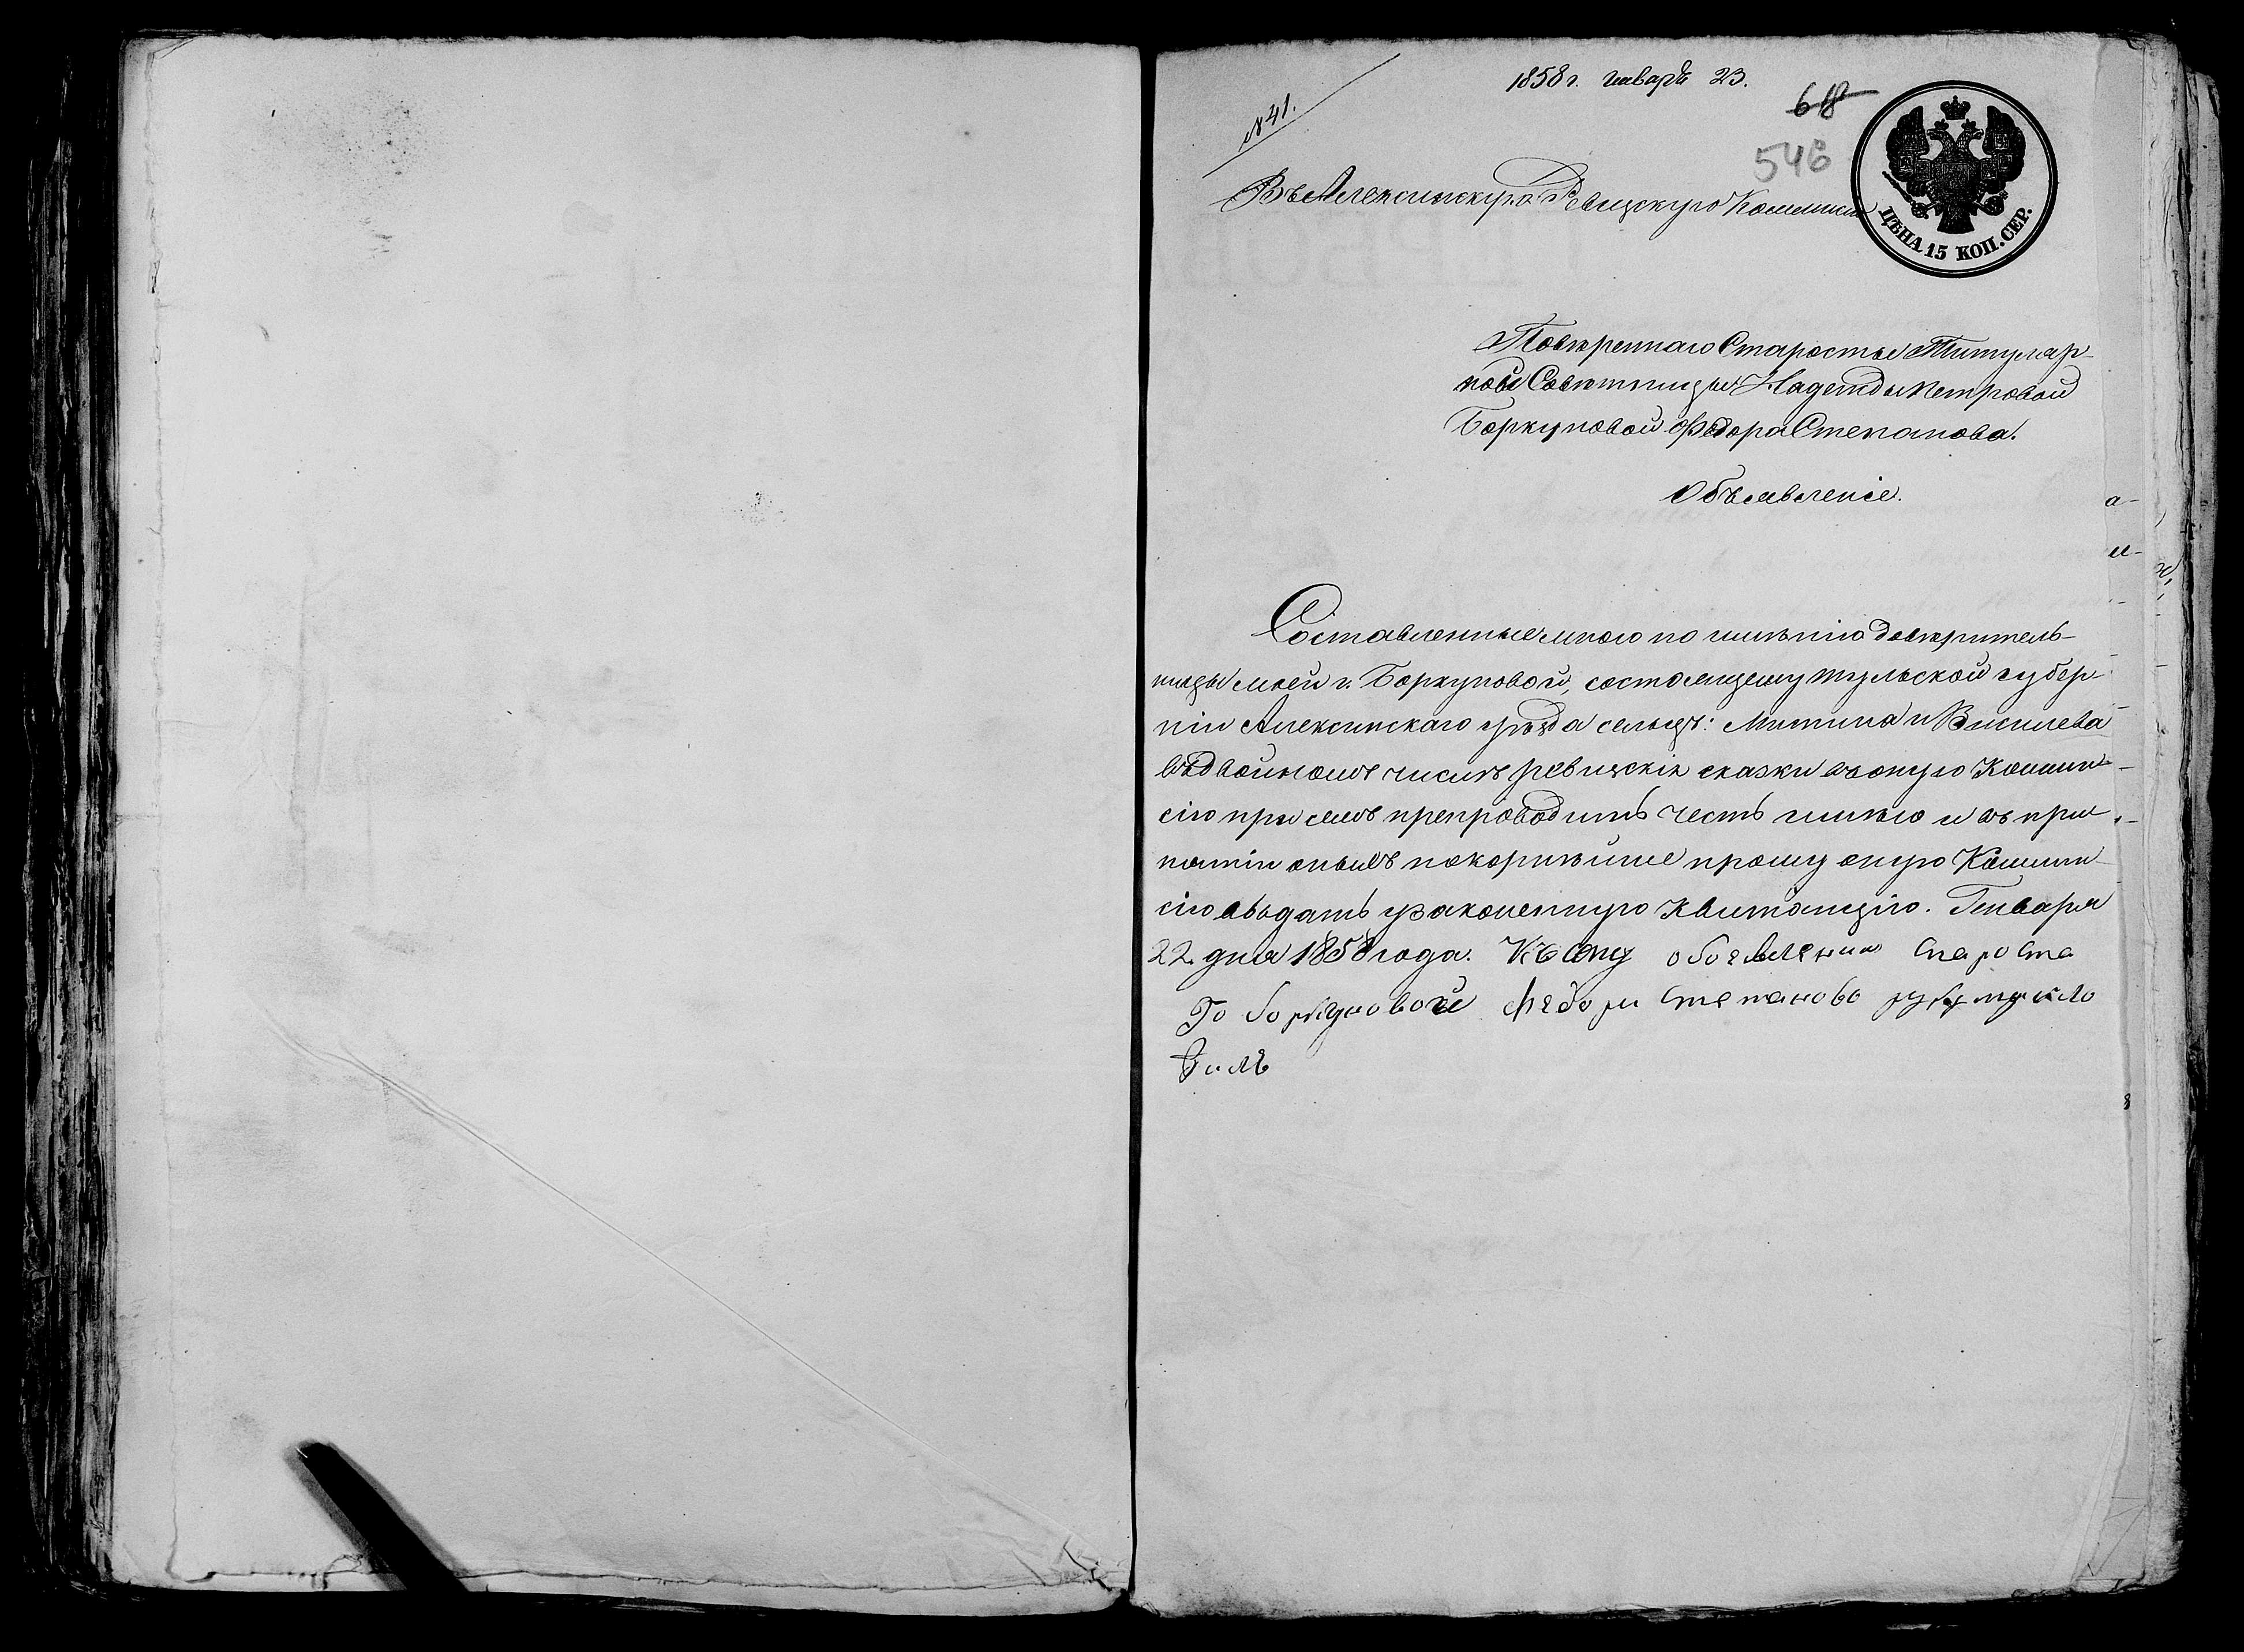 1858 г. Январь 23.
№ 41.
618
546
ЦѢНА 15 КОП. СЕР.
Въ Алексинскую Ревизскую Комисiю
Повѣреннаго Старосты Титуляр-
ной Совѣтницы Надежды Петровой
Боркуновой Федора Степанова.
Объявленiе.
Составленные мною по имѣнiю довѣритель-
ницы моей г. Боркуновой, состоящему Тульской губер-
нiи Алексинскаго уѣзда сельцѣ: Митина и
въ двойномъ числѣ ревизскiя сказки въ оную Комми-
сiю при семъ препроводить честь имѣю и въ при-
нятiи оныхъ покорнѣйше прошу оную Комми-
сiю выдать узаконенную Квитанцiю. Генваря
22 дня 1858 года. Къ сему староста
Го боркуновой Федоръ Степановъ руку прило
жилъ
а-
и-